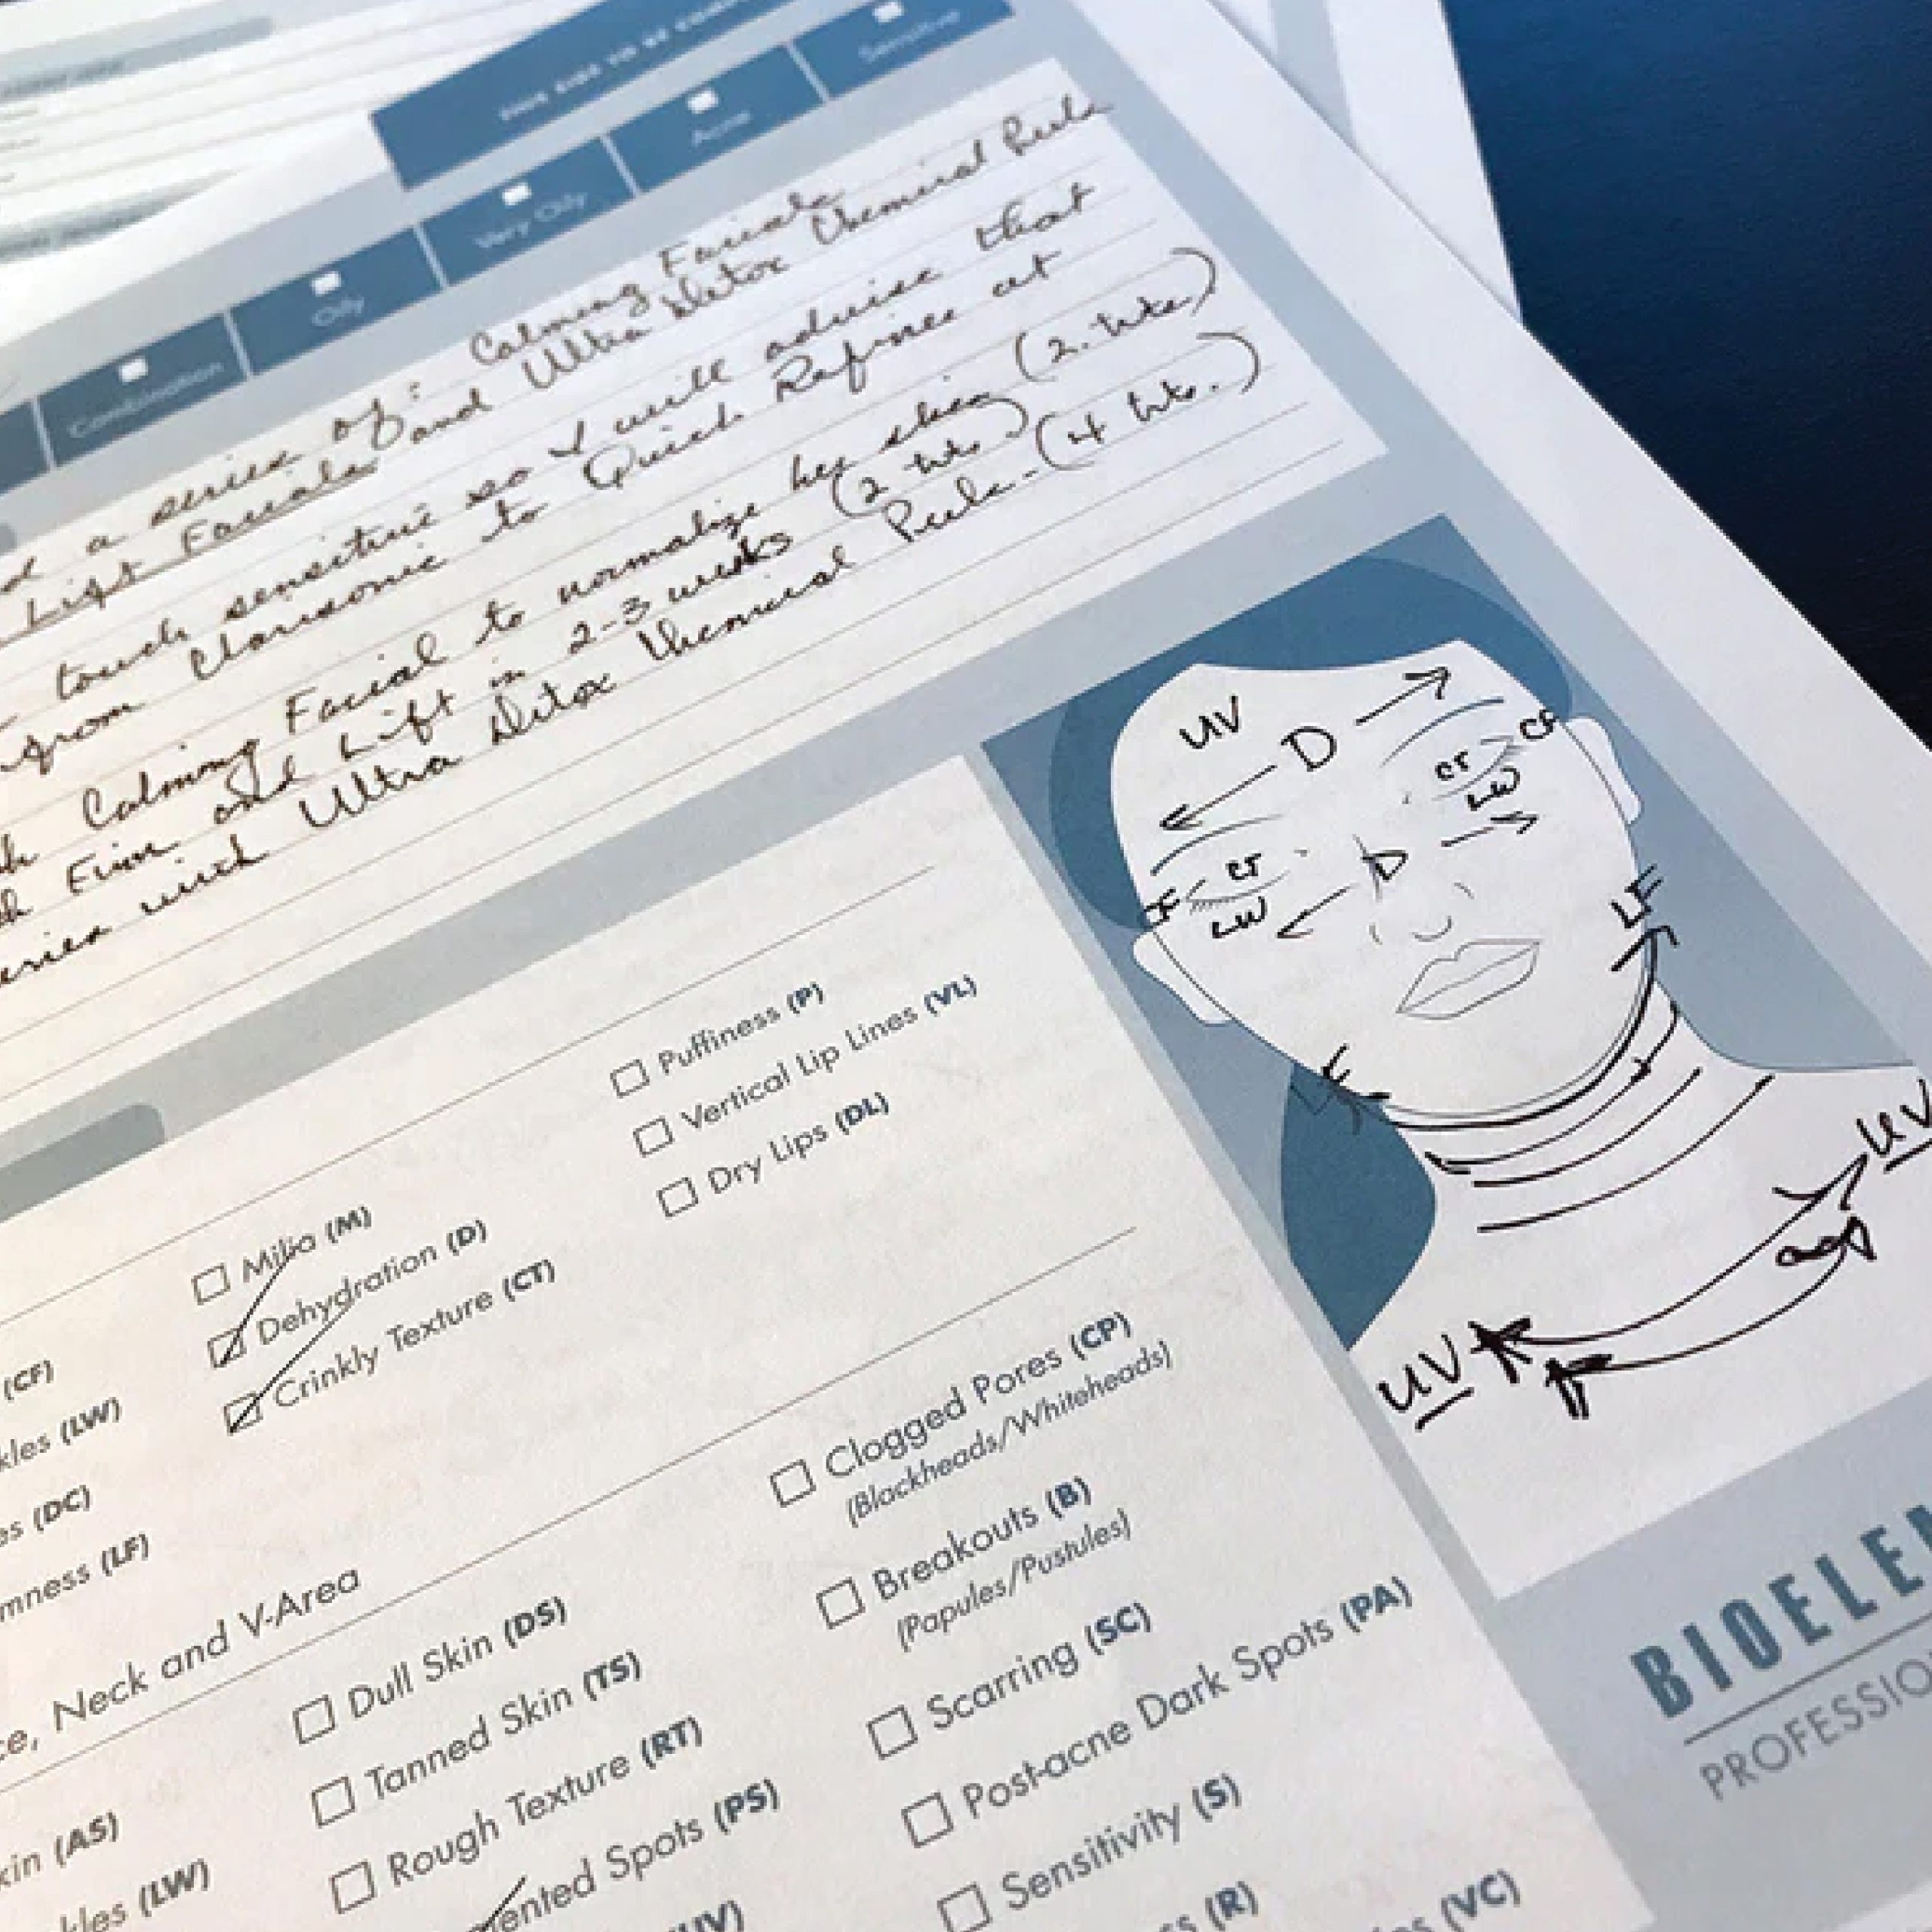 THIS SIDE TO BE
Combination
Oily
Very Oily
Acne
Sensitive
a series of: Calming Facials
Lift Facials and Ultra Detox Chemical Peels
touch sensitive so I will advise that
from Clarisonic to Quick Refiner at
Calming Facial to normalize her skin (2 txs)
Firm and Lift in 2-3 weeks (2 txs)
series with Ultra Detox Chemical Peels - (4 txs.)
UV
D
CF
CT
LW
D
CT
LW
LF
LF
UV
UV
Puffiness (P)
Vertical Lip Lines (VL)
Dry Lips (DL)
Milia (M)
Dehydration (D)
Crinkly Texture (CT)
(CF)
kles (LW)
es (DC)
mness (LF)
ce, Neck and V-Area
Clogged Pores (CP)
(Blackheads/Whiteheads)
Breakouts (B)
(Papules/Pustules)
Scarring (SC)
Post-acne Dark Spots (PA)
Sensitivity (S)
ss (R)
es (VC)
Dull Skin (DS)
Tanned Skin (TS)
Rough Texture (RT)
ented Spots (PS)
(UV)
kin (AS)
kles (LW)
BIOELEM
PROFESSIO